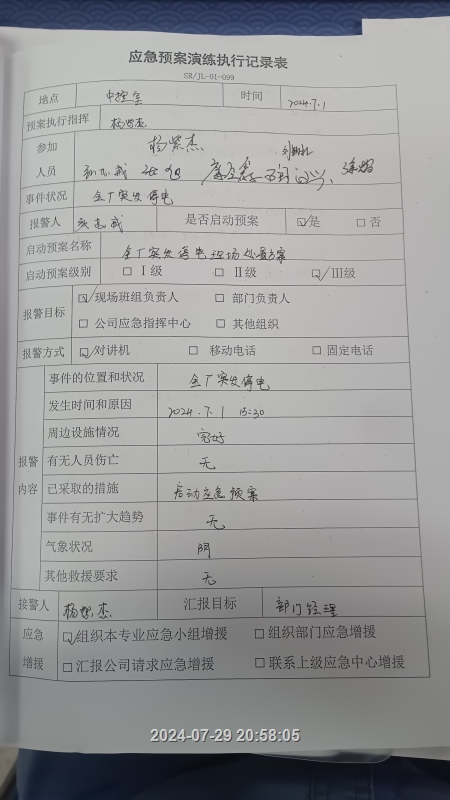 应急预案演练执行记录表
SR/JL-01-099
地点 中控室 时间 2024.7.1
预案执行指挥 杨紫杰
参加 杨紫杰
人员
事件状况 全厂突发停电
报警人 是否启动预案 ☑是 □否
启动预案名称 全厂突发停电现场处置方案
启动预案级别 □Ⅰ级 □Ⅱ级 ☑Ⅲ级
报警目标 ☑现场班组负责人 □部门负责人
□公司应急指挥中心 □其他组织
报警方式 ☑对讲机 □移动电话 □固定电话
报警内容
事件的位置和状况 全厂突发停电
发生时间和原因 2024.7.1 15:30
周边设施情况 完好
有无人员伤亡 无
已采取的措施 启动应急预案
事件有无扩大趋势 无
气象状况 阴
其他救援要求 无
接警人 杨紫杰 汇报目标 部门经理
应急增援 ☑组织本专业应急小组增援 □组织部门应急增援
□汇报公司请求应急增援 □联系上级应急中心增援
2024-07-29 20:58:05